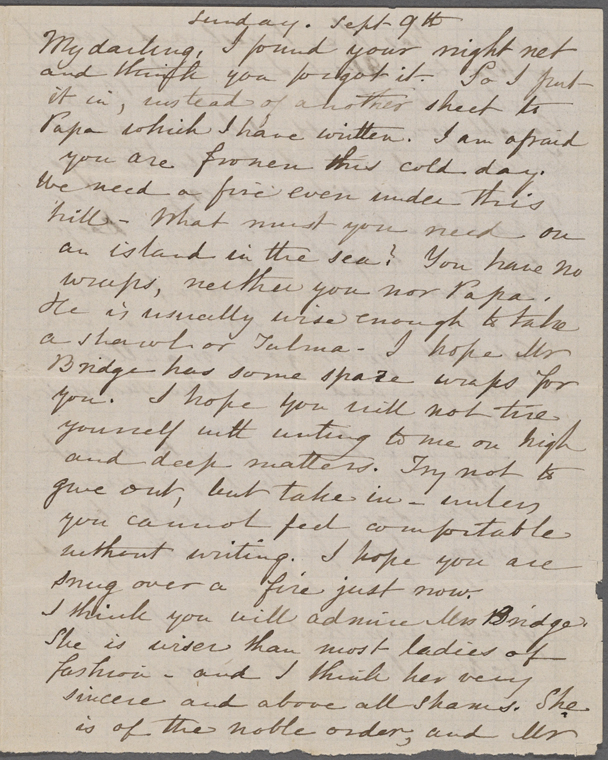 Sunday. Sept 9th
My darling, I found your night net
and think you forgot it. So I put
it in, instead of another sheet to
Papa which I have written. I am afraid
you are frozen this cold day.
We need a fire even under this
hill - What must you need on
an island in the sea? You have no
wraps, neither you nor Papa.
He is usually wise enough to take
a shawl or Talma - I hope Mr
Bridge has some spare wraps for
you. I hope you will not tire
yourself with writing to me on high
and deep matters. Try not to
give out, but take in - unless
you cannot feel comfortable
without writing. I hope you are
snug over a fire just now.
I think you will admire Mrs Bridge.
She is wiser than most ladies of
fashion - and I think her very
sincere and above all shams. She
is of the noble order, and Mr